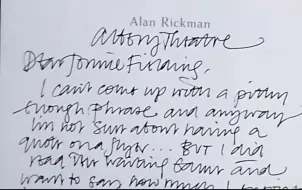 Alan Rickman
Dear Fielding,
I can't come up with a pithy
enough phrase and anyway
I'm not sure about having a
quote on a flyer... But I did
read The Waiting Game and
want to say how much I